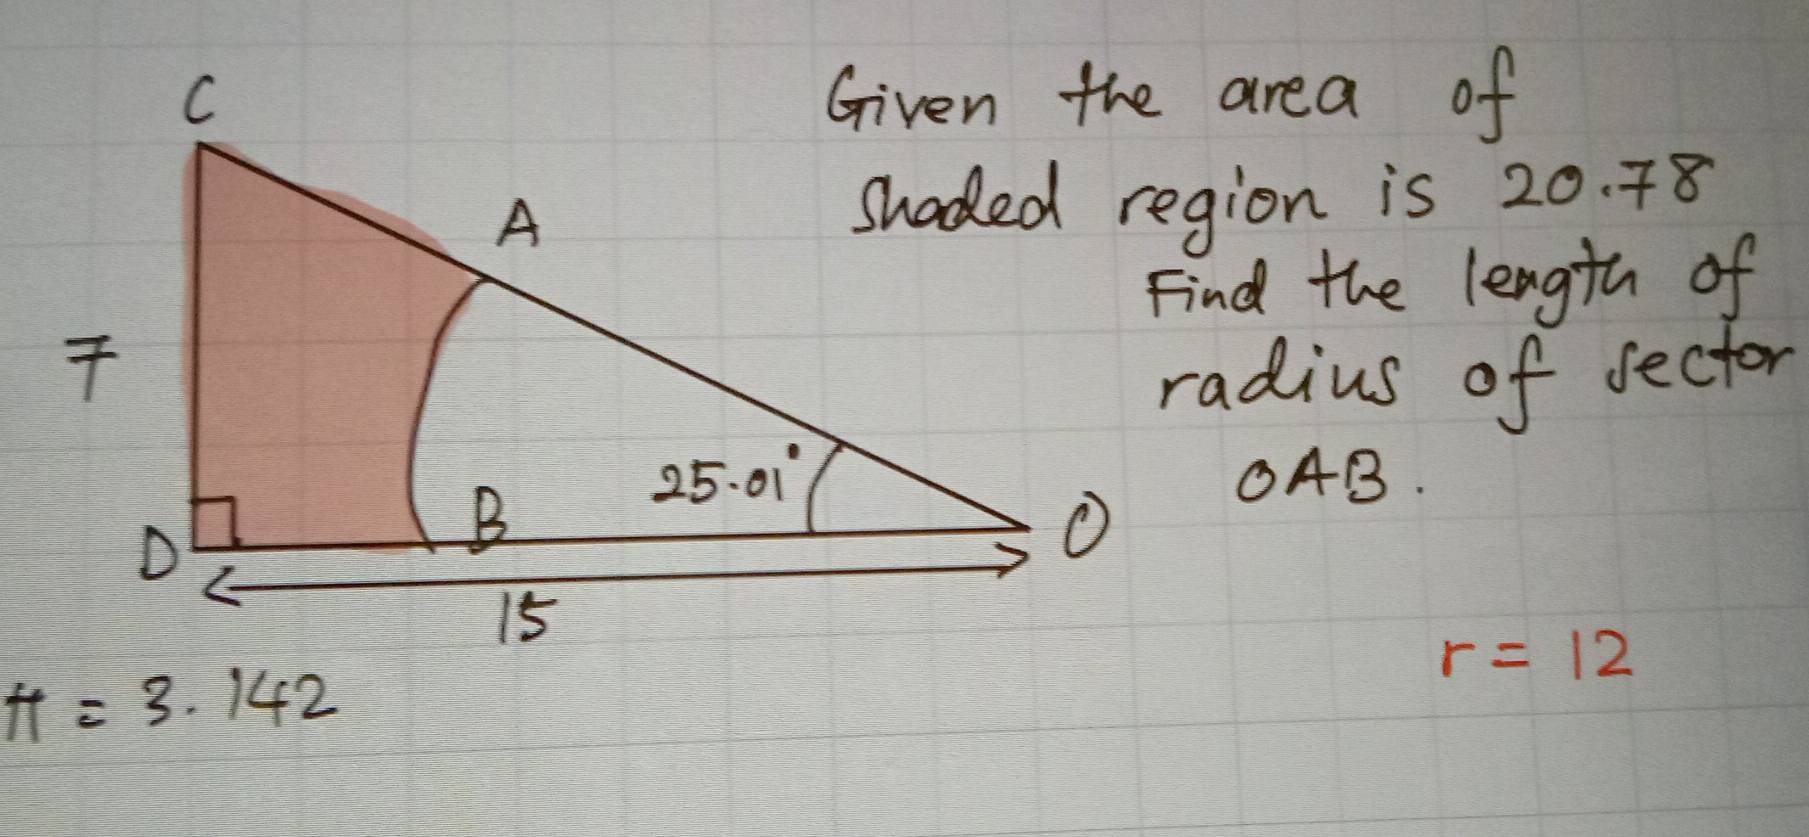 C
Given the area of
A
shaded region is 20.78
Find the length of
7
radius of sector
25.01°
OAB.
B
O
D
15
r = 12
π = 3.142